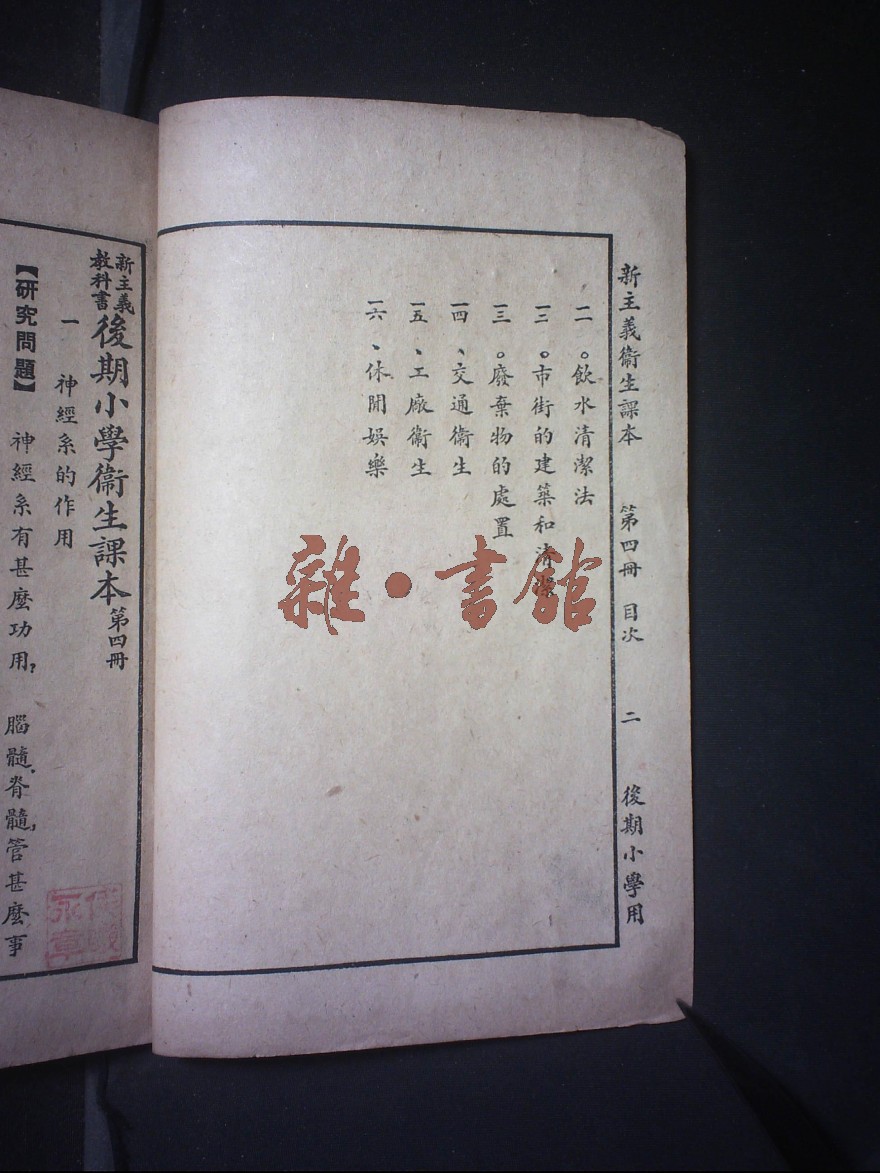 新主義衞生課本 第四冊 目次 二 後期小學用
一一。飲水清潔法
一二。市街的建築和清潔
一三。廢棄物的處置
一四、交通衞生
一五、工廠衞生
一六、休閒娛樂
雜·書館
新主義教科書 後期小學衞生課本 第四冊
一 神經系的作用
【研究問題】 神經系有甚麼功用? 腦髓、脊髓,管甚麼事